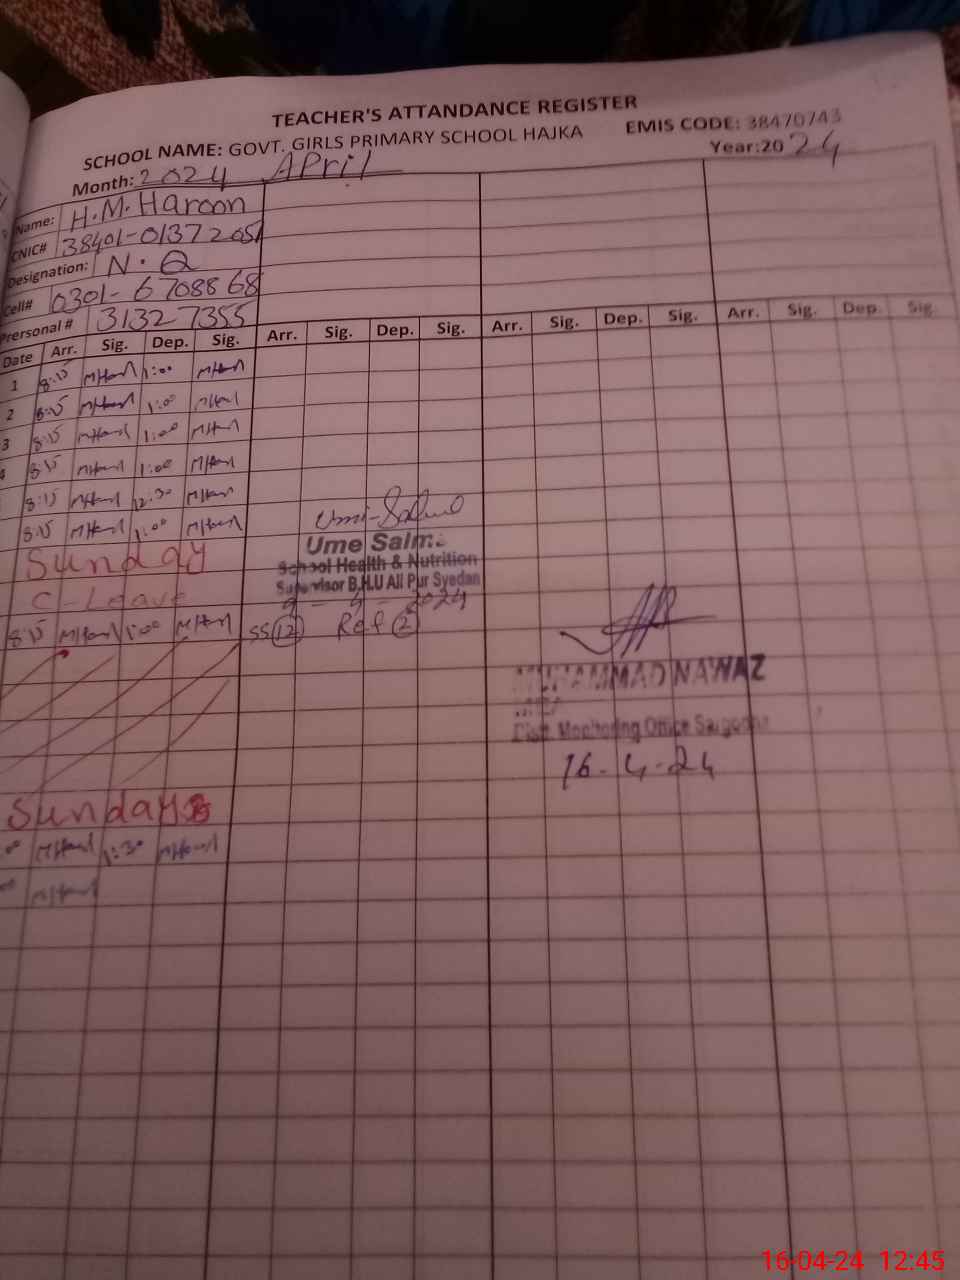 TEACHER'S ATTANDANCE REGISTER
SCHOOL NAME: GOVT. GIRLS PRIMARY SCHOOL HAJKA EMIS CODE: 38470743
Month: 2024 April Year:2024
Name: H.M. Haroon
CNIC# 38401-0137205
Designation: N.Q
Cell# 0301-6708868
Prersonal # 31327355
Date Arr. Sig. Dep. Sig. Arr. Sig. Dep. Sig. Arr. Sig. Dep. Sig. Arr. Sig. Dep. Sig.
1 8:15 1:00
2 8:15 1:00
3 8:15 1:00
4 8:15 1:00
8:15 12:30
8:15 1:00
Sunday
C-Leave
8:15 1:00
Ume Salm
School Health & Nutrition
Supervisor B.H.U Ali Pur Syedan
9-4-2024
SS 12 Ref 2
MUHAMMAD NAWAZ
Distt. Monitoring Office Sargodha
16-4-24
Sunday
1:30
16-04-24 12:45